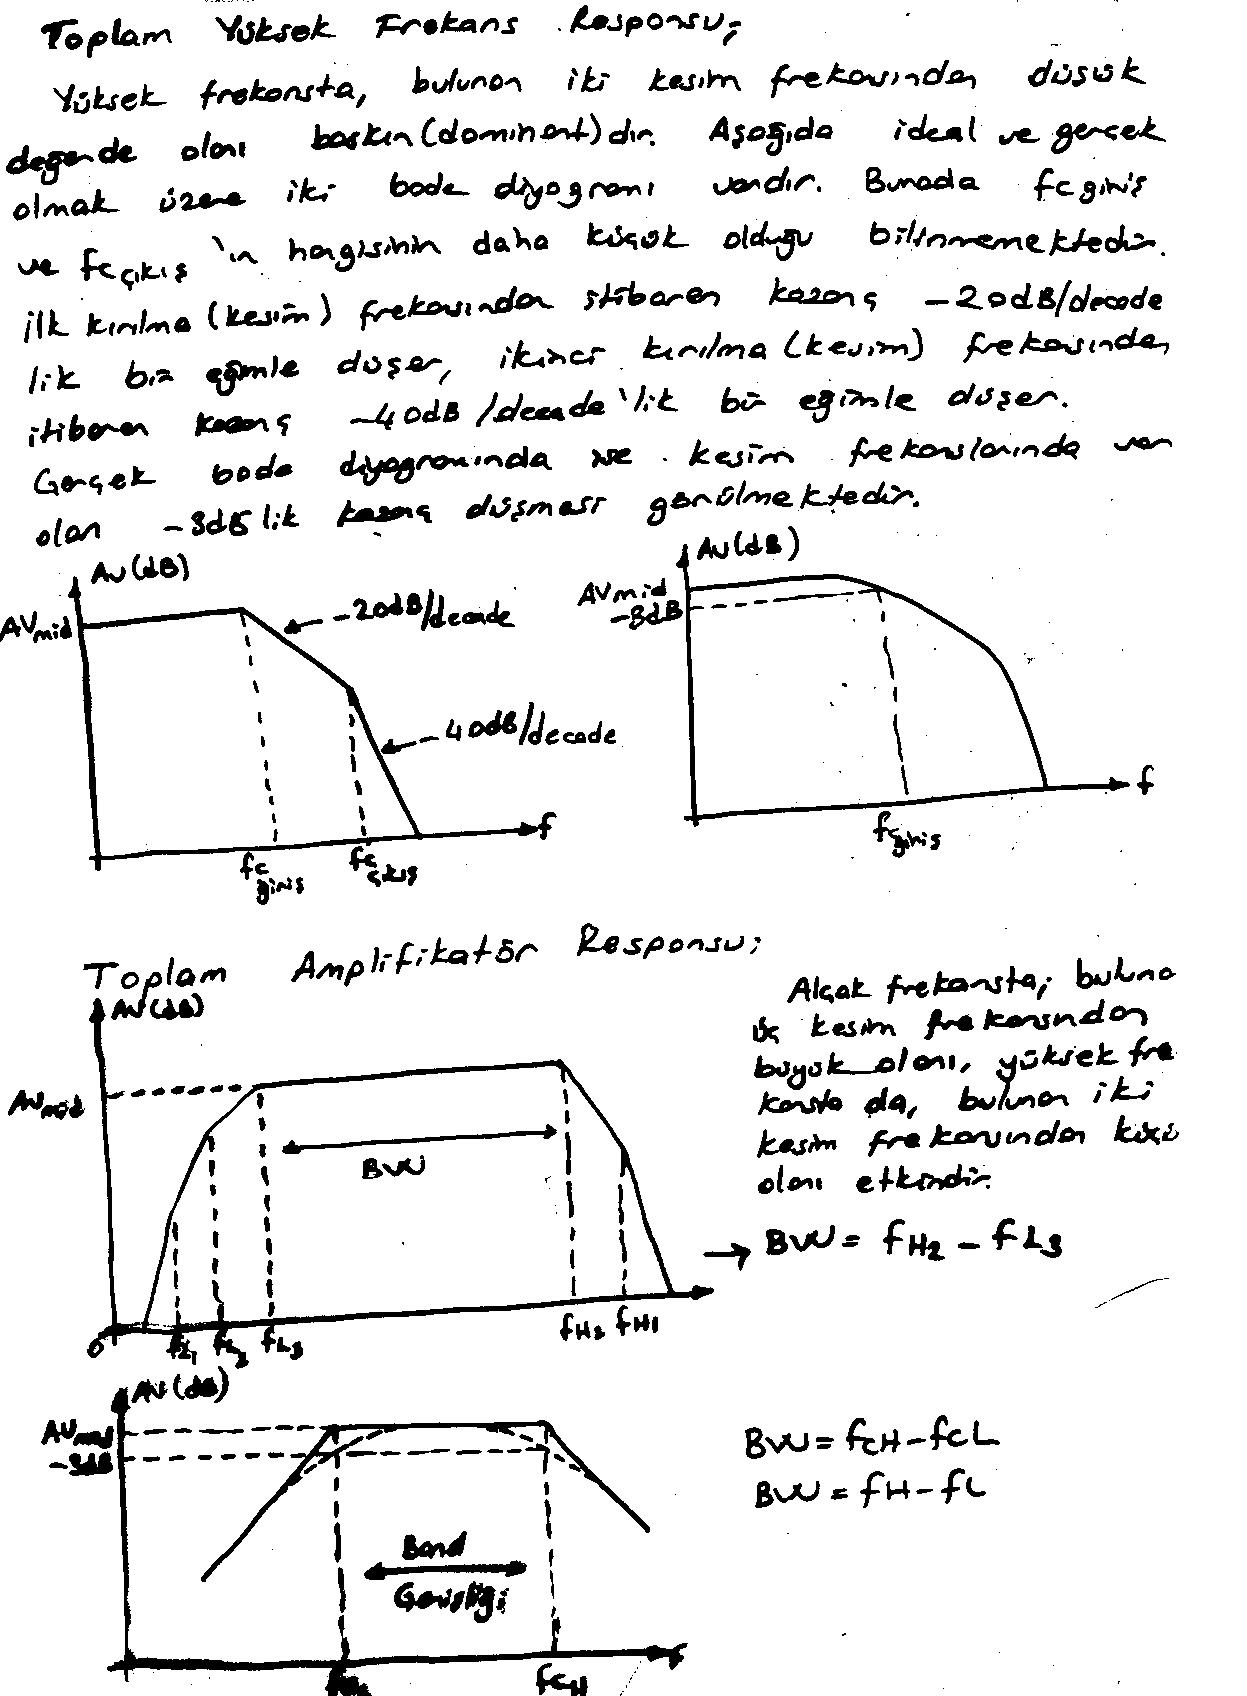 Toplam Yüksek Frekans Responsu;
Yüksek frekansta, bulunan iki kesim frekansından düşük
değerde olanı baskın(dominant)dır. Aşağıda ideal ve gerçek
olmak üzere iki bode diyagramı vardır. Burada fc giriş
ve fc çıkış 'ın hangisinin daha küçük olduğu bilinmemektedir.
ilk kırılma (kesim) frekansından itibaren kazanç -20dB/decade
lik bir eğimle düşer, ikinci kırılma (kesim) frekansından
itibaren kazanç -40dB/decade'lik bir eğimle düşer.
Gerçek bode diyagramında ise kesim frekanslarında var
olan -3dB lik kazanç düşmesi görülmektedir.
Av(dB)
AVmid
-20dB/decade
-40dB/decade
fc giriş
fc çıkış
f
Av(dB)
AVmid
-3dB
fc giriş
f
Toplam Amplifikatör Responsu;
Av(dB)
AVmid
BW
0
fL1
fL2
fL3
fH2
fH1
Alçak frekansta; buluna
üç kesim frekansından
büyük olanı, yüksek fre
kansta da, bulunan iki
kesim frekansından küçü
olanı etkindir.
→ BW = fH2 - fL3
Av(dB)
AVmid
-3dB
Band
Genişliği
fcL
fcH
f
BW = fcH - fcL
BW = fH - fL